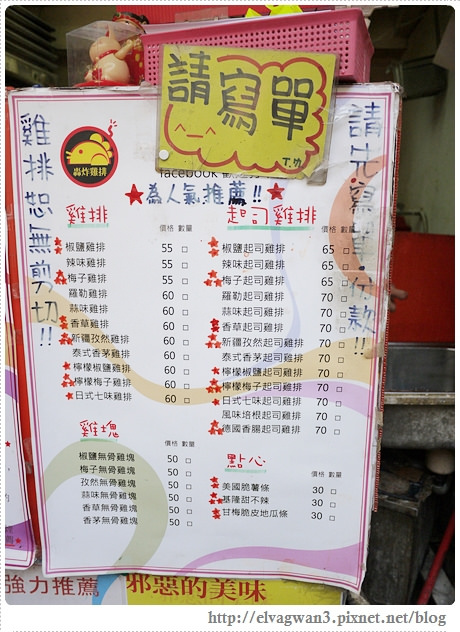 請寫單
T.ㄌ
雞排恕無剪切!!
請先寫單,付款!!
轟炸雞排
facebook
★為人氣推薦!!★
雞排
價格 數量
椒鹽雞排 55 □
辣味雞排 55 □
梅子雞排 55 □
羅勒雞排 60 □
蒜味雞排 60 □
香草雞排 60 □
新疆孜然雞排 60 □
泰式香茅雞排 60 □
檸檬椒鹽雞排 60 □
檸檬梅子雞排 60 □
日式七味雞排 60 □
起司雞排
價格 數量
椒鹽起司雞排 65 □
辣味起司雞排 65 □
梅子起司雞排 65 □
羅勒起司雞排 70 □
蒜味起司雞排 70 □
香草起司雞排 70 □
新疆孜然起司雞排 70 □
泰式香茅起司雞排 70 □
檸檬椒鹽起司雞排 70 □
檸檬梅子起司雞排 70 □
日式七味起司雞排 70 □
風味培根起司雞排 70 □
德國香腸起司雞排 70 □
雞塊
價格 數量
椒鹽無骨雞塊 50 □
梅子無骨雞塊 50 □
孜然無骨雞塊 50 □
蒜味無骨雞塊 50 □
香草無骨雞塊 50 □
香茅無骨雞塊 50 □
點心
價格 數量
美國脆薯條 30 □
基隆甜不辣 30 □
甘梅脆皮地瓜條 30 □
強力推薦 邪惡的美味
http://elvagwan3.pixnet.net/blog